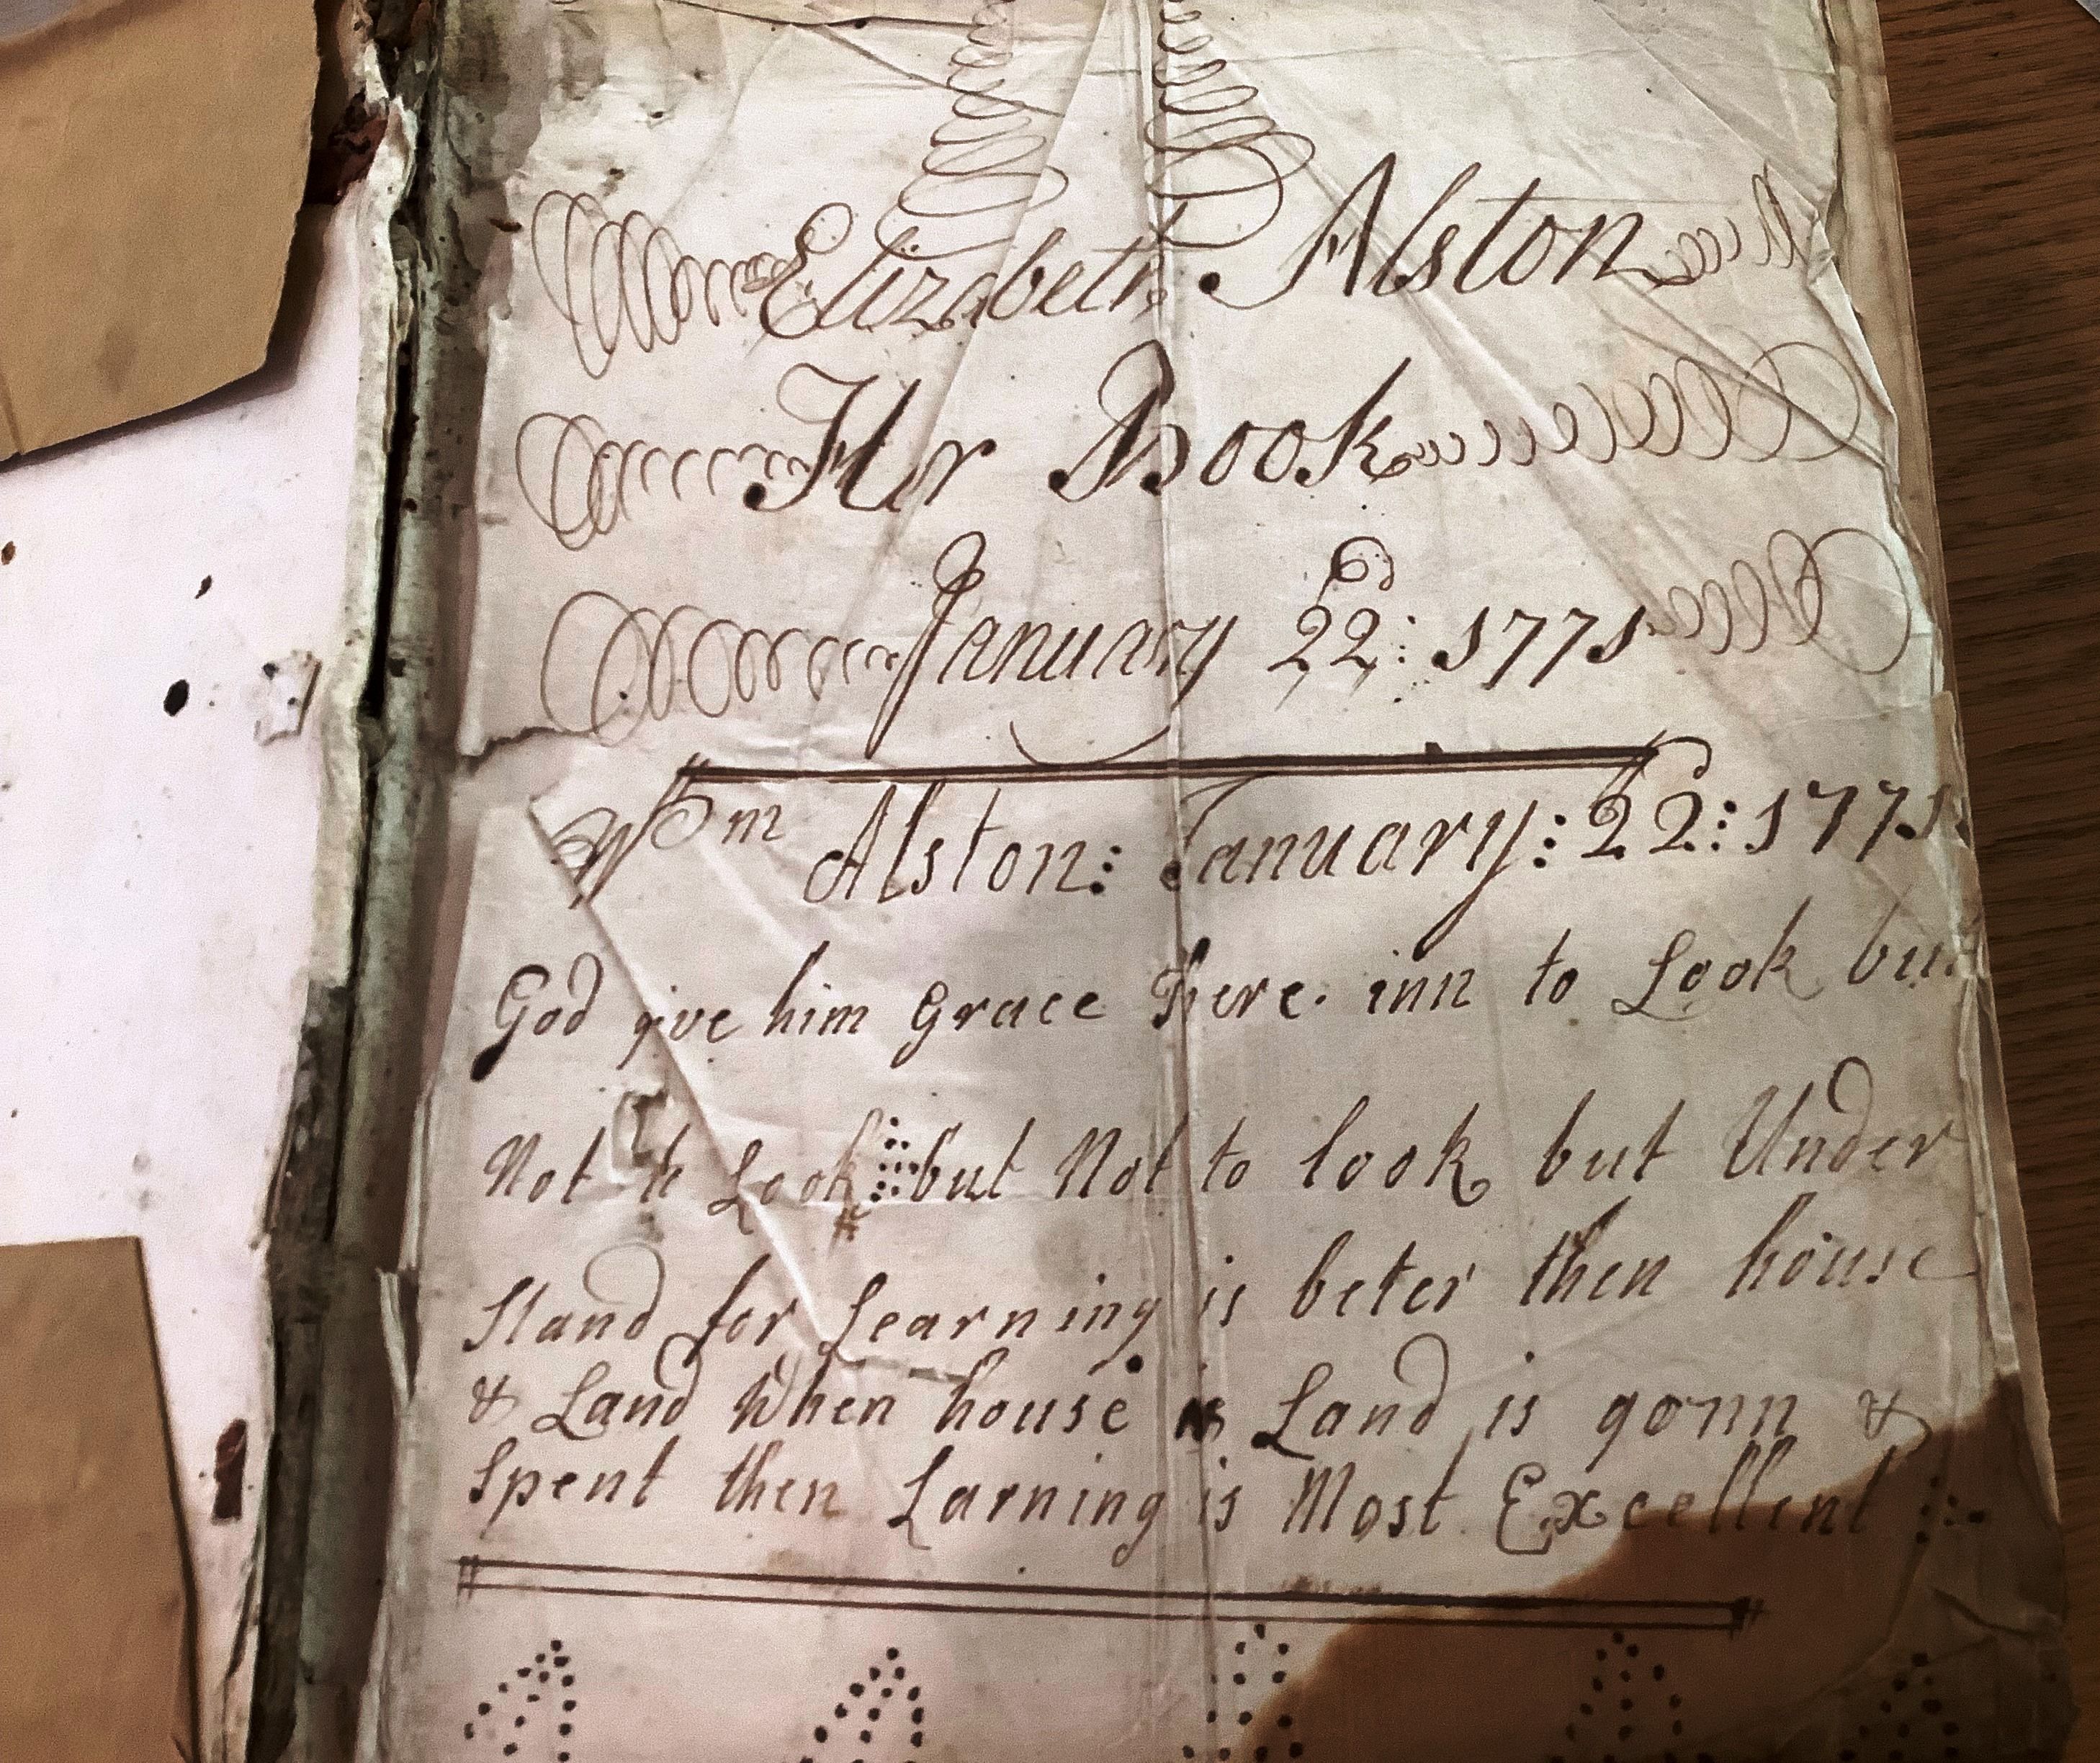 Elizabeth Alston
Her Book
January 22: 1771
Wm Alston: January: 22: 1771
God give him Grace there inn to Look but
Not to Look but Not to look but Under
Stand for Learning is beter then house
& Land When house & Land is gonn &
Spent then Larning is Most Excellent